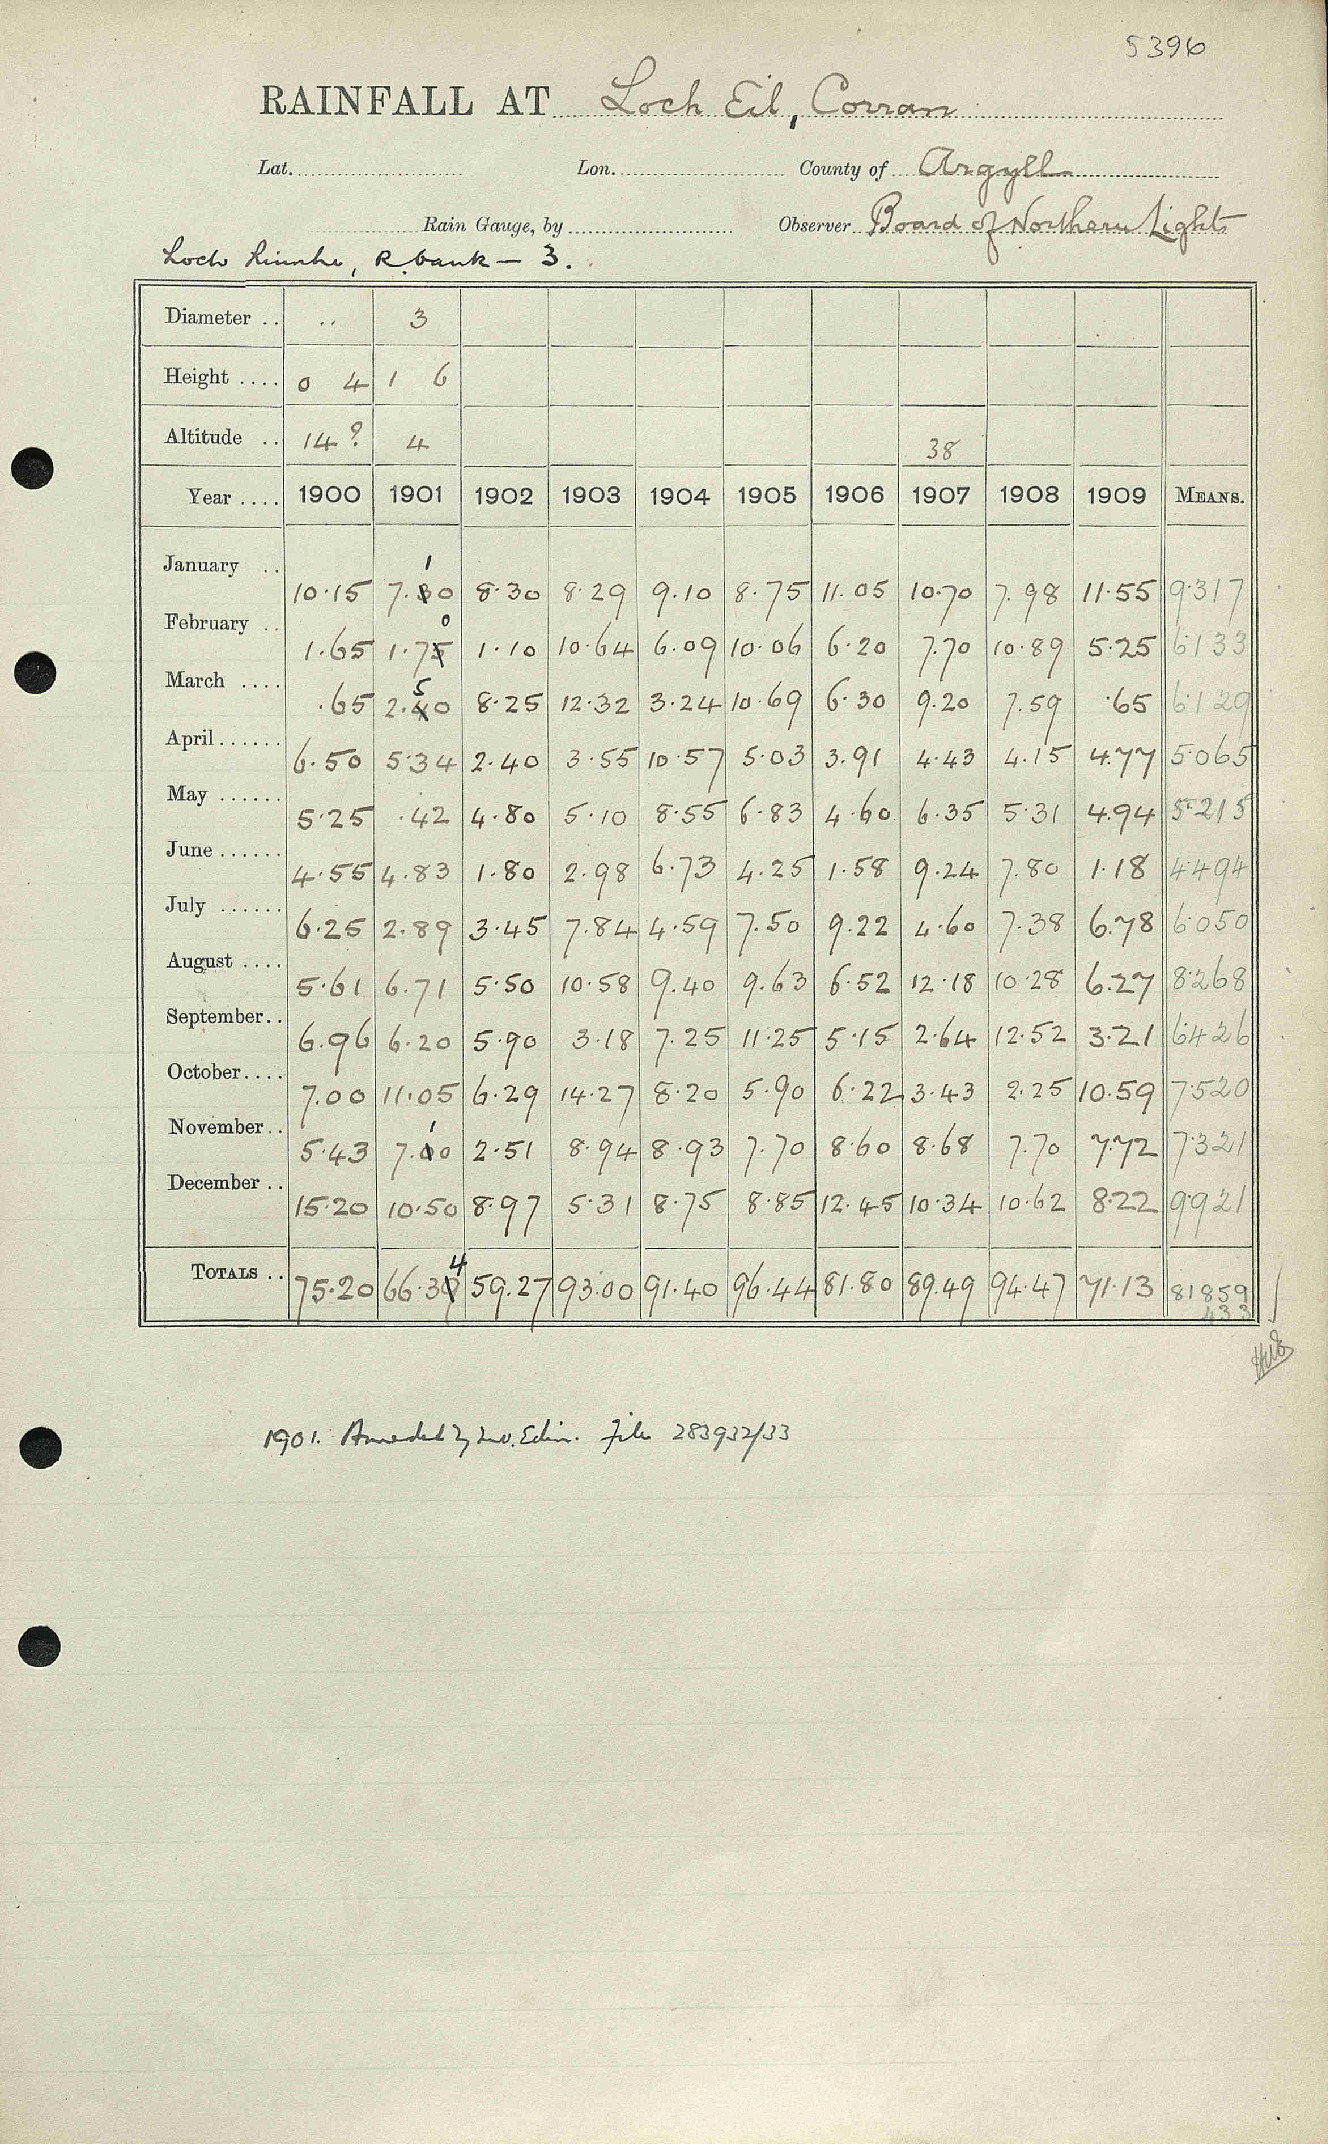 5396
RAINFALL AT Loch Eil, Corran
Lat. Lon. County of Argyll
Rain Gauge, by Observer Board of Northern Lights
Loch Linnhe, R. bank – 3.
Diameter .. .. 3
Height .... 0 4 1 6
Altitude .. 14? 4 38
Year .... 1900 1901 1902 1903 1904 1905 1906 1907 1908 1909 MEANS.
1
January .. 10.15 7.30 8.30 8.29 9.10 8.75 11.05 10.70 7.98 11.55 9.317
0
February .. 1.65 1.75 1.10 10.64 6.09 10.06 6.20 7.70 10.89 5.25 6133
5
March .... .65 2.40 8.25 12.32 3.24 10.69 6.30 9.20 7.59 .65 6129
April...... 6.50 5.34 2.40 3.55 10.57 5.03 3.91 4.43 4.15 4.77 5065
May ...... 5.25 .42 4.80 5.10 8.55 6.83 4.60 6.35 5.31 4.94 5.215
June ...... 4.55 4.83 1.80 2.98 6.73 4.25 1.58 9.24 7.80 1.18 4494
July ...... 6.25 2.89 3.45 7.84 4.59 7.50 9.22 4.60 7.38 6.78 6050
August .... 5.61 6.71 5.50 10.58 9.40 9.63 6.52 12.18 10.28 6.27 8268
September.. 6.96 6.20 5.90 3.18 7.25 11.25 5.15 2.64 12.52 3.21 6426
October.... 7.00 11.05 6.29 14.27 8.20 5.90 6.22 3.43 2.25 10.59 7520
1
November.. 5.43 7.00 2.51 8.94 8.93 7.70 8.60 8.68 7.70 7.72 7321
December .. 15.20 10.50 8.97 5.31 8.75 8.85 12.45 10.34 10.62 8.22 9921
4
TOTALS .. 75.20 66.39 59.27 93.00 91.40 96.44 81.80 89.49 94.47 71.13 81859
433
1901. Amended by Edin. File 283932/33